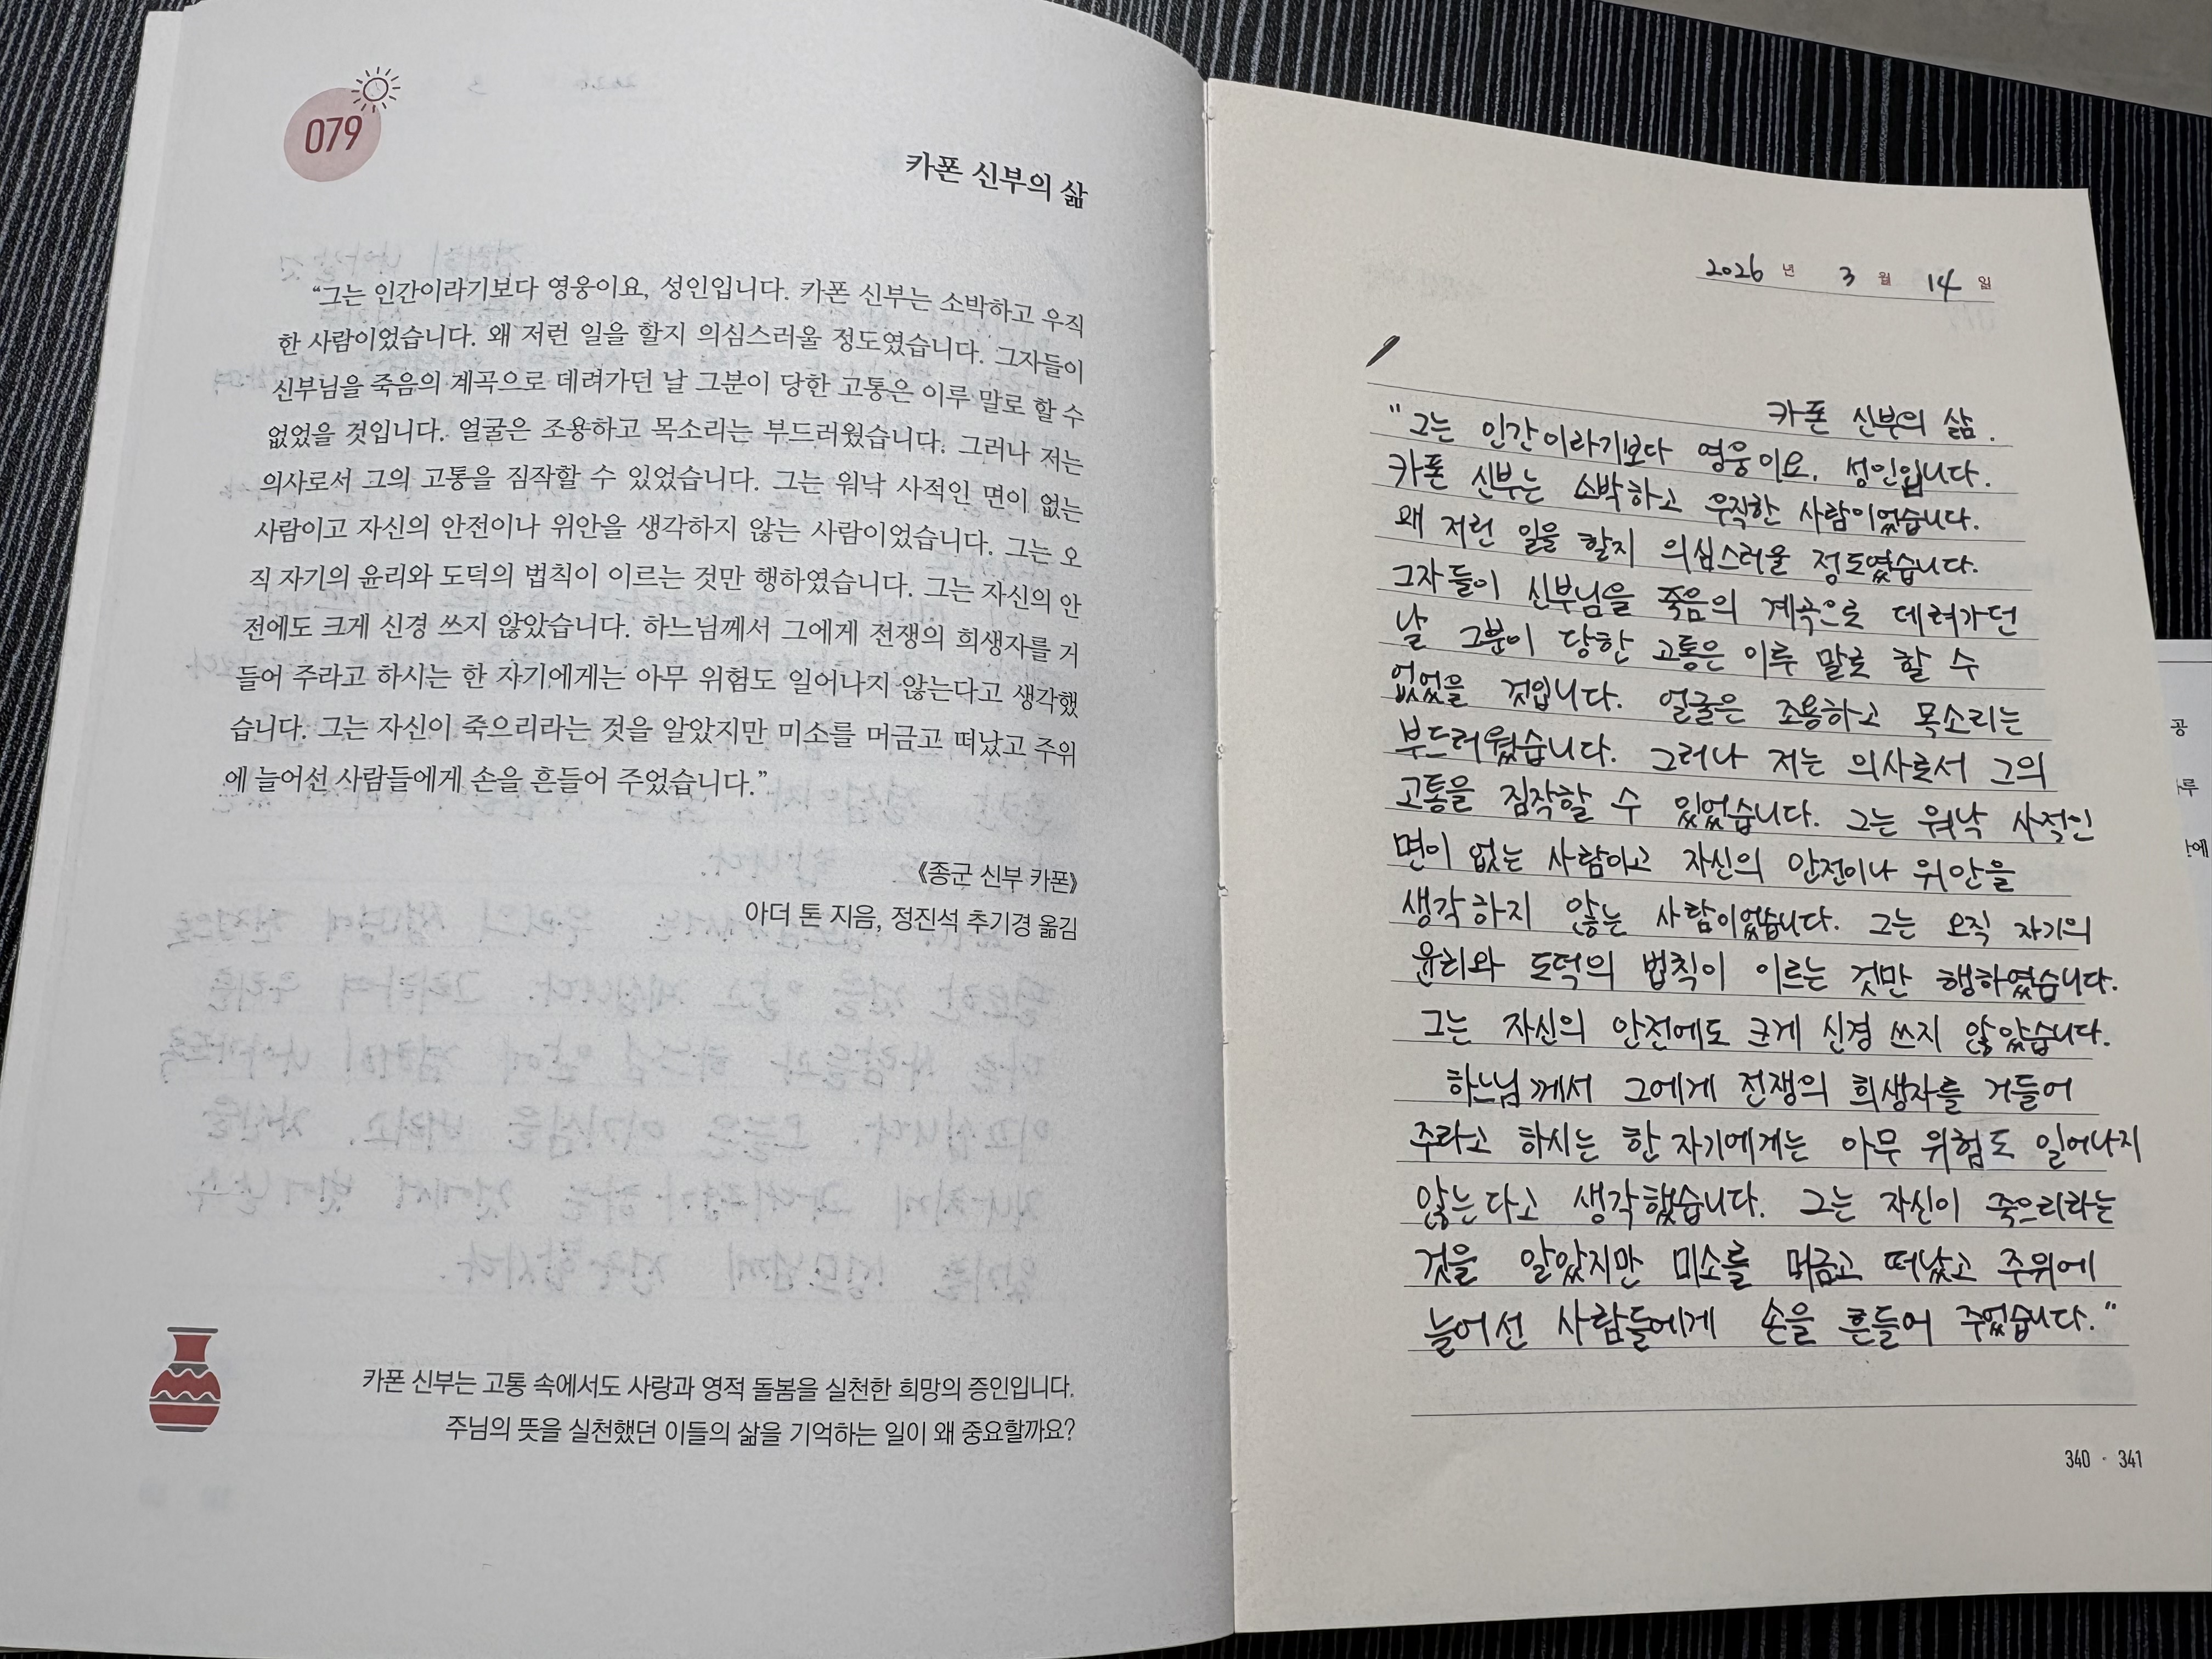 079
카폰 신부의 삶
“그는 인간이라기보다 영웅이요, 성인입니다. 카폰 신부는 소박하고 우직
한 사람이었습니다. 왜 저런 일을 할지 의심스러울 정도였습니다. 그자들이
신부님을 죽음의 계곡으로 데려가던 날 그분이 당한 고통은 이루 말로 할 수
없었을 것입니다. 얼굴은 조용하고 목소리는 부드러웠습니다. 그러나 저는
의사로서 그의 고통을 짐작할 수 있었습니다. 그는 워낙 사적인 면이 없는
사람이고 자신의 안전이나 위안을 생각하지 않는 사람이었습니다. 그는 오
직 자기의 윤리와 도덕의 법칙이 이르는 것만 행하였습니다. 그는 자신의 안
전에도 크게 신경 쓰지 않았습니다. 하느님께서 그에게 전쟁의 희생자를 거
들어 주라고 하시는 한 자기에게는 아무 위험도 일어나지 않는다고 생각했
습니다. 그는 자신이 죽으리라는 것을 알았지만 미소를 머금고 떠났고 주위
에 늘어선 사람들에게 손을 흔들어 주었습니다.”
《종군 신부 카폰》
아더 톤 지음, 정진석 추기경 옮김
카폰 신부는 고통 속에서도 사랑과 영적 돌봄을 실천한 희망의 증인입니다.
주님의 뜻을 실천했던 이들의 삶을 기억하는 일이 왜 중요할까요?
2026 년 3 월 14 일
카폰 신부의 삶.
"그는 인간이라기보다 영웅이요, 성인입니다.
카폰 신부는 소박하고 우직한 사람이었습니다.
왜 저런 일을 할지 의심스러울 정도였습니다.
그자들이 신부님을 죽음의 계곡으로 데려가던
날 그분이 당한 고통은 이루 말로 할 수
없었을 것입니다. 얼굴은 조용하고 목소리는
부드러웠습니다. 그러나 저는 의사로서 그의
고통을 짐작할 수 있었습니다. 그는 워낙 사적인
면이 없는 사람이고 자신의 안전이나 위안을
생각하지 않는 사람이었습니다. 그는 오직 자기의
윤리와 도덕의 법칙이 이르는 것만 행하였습니다.
그는 자신의 안전에도 크게 신경 쓰지 않았습니다.
하느님께서 그에게 전쟁의 희생자를 거들어
주라고 하시는 한 자기에게는 아무 위험도 일어나지
않는다고 생각했습니다. 그는 자신이 죽으리라는
것을 알았지만 미소를 머금고 떠났고 주위에
늘어선 사람들에게 손을 흔들어 주었습니다."
340 · 341
공